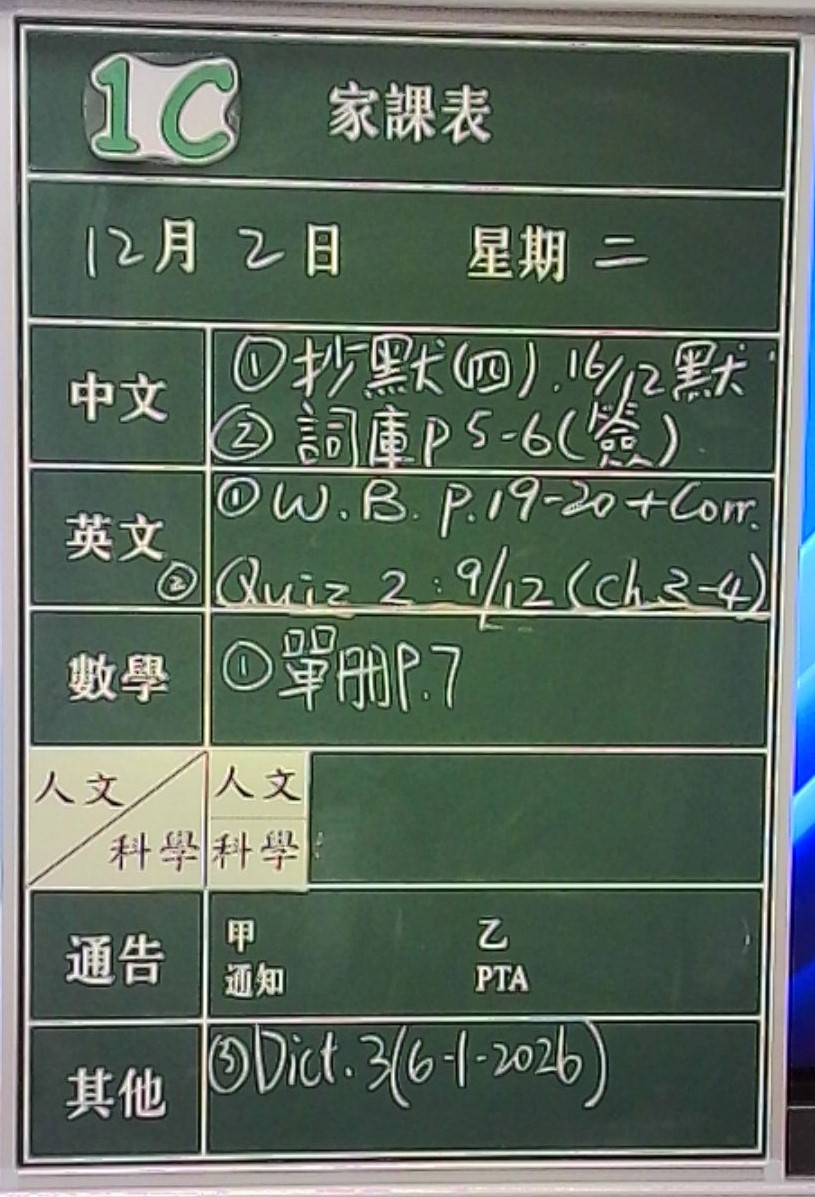 1C 家課表
12月2日 星期二
中文 ①抄默(四).16/12默
②詞庫P5-6(簽)
英文 ①W.B. P.19-20+Corr.
②Quiz 2:9/12(Ch 3-4)
數學 ①單册P.7
人文 人文
科學 科學
通告 甲 乙
通知 PTA
其他 ③Dict.3(6-1-2026)